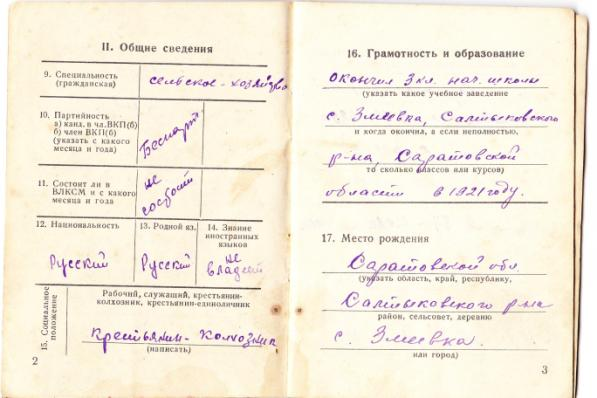 II. Общие сведения
9. Специальность
(гражданская)
сельское-хозяйство
10. Партийность
а) канд. в чл. ВКП(б)
б) член ВКП(б)
(указать с какого
месяца и года)
Беспарт
11. Состоит ли в
ВЛКСМ и с какого
месяца и года
не
состоит
12. Национальность
Русский
13. Родной яз.
Русский
14. Знание
иностранных
языков
не
владеет
15. Социальное
положение
Рабочий, служащий, крестьянин-
колхозник, крестьянин-единоличник
Крестьянин-колхозник
(написать)
2
16. Грамотность и образование
окончил 3 кл. нач. школы
(указать какое учебное заведение
с. Змеевка, Салтыковского
и когда окончил, а если неполностью,
р-на, Саратовской
то сколько классов или курсов)
области в 1921 году.
17. Место рождения
Саратовской обл
(указать область, край, республику,
Салтыковского р-на
район, сельсовет, деревню
с. Змеевка.
или город)
3